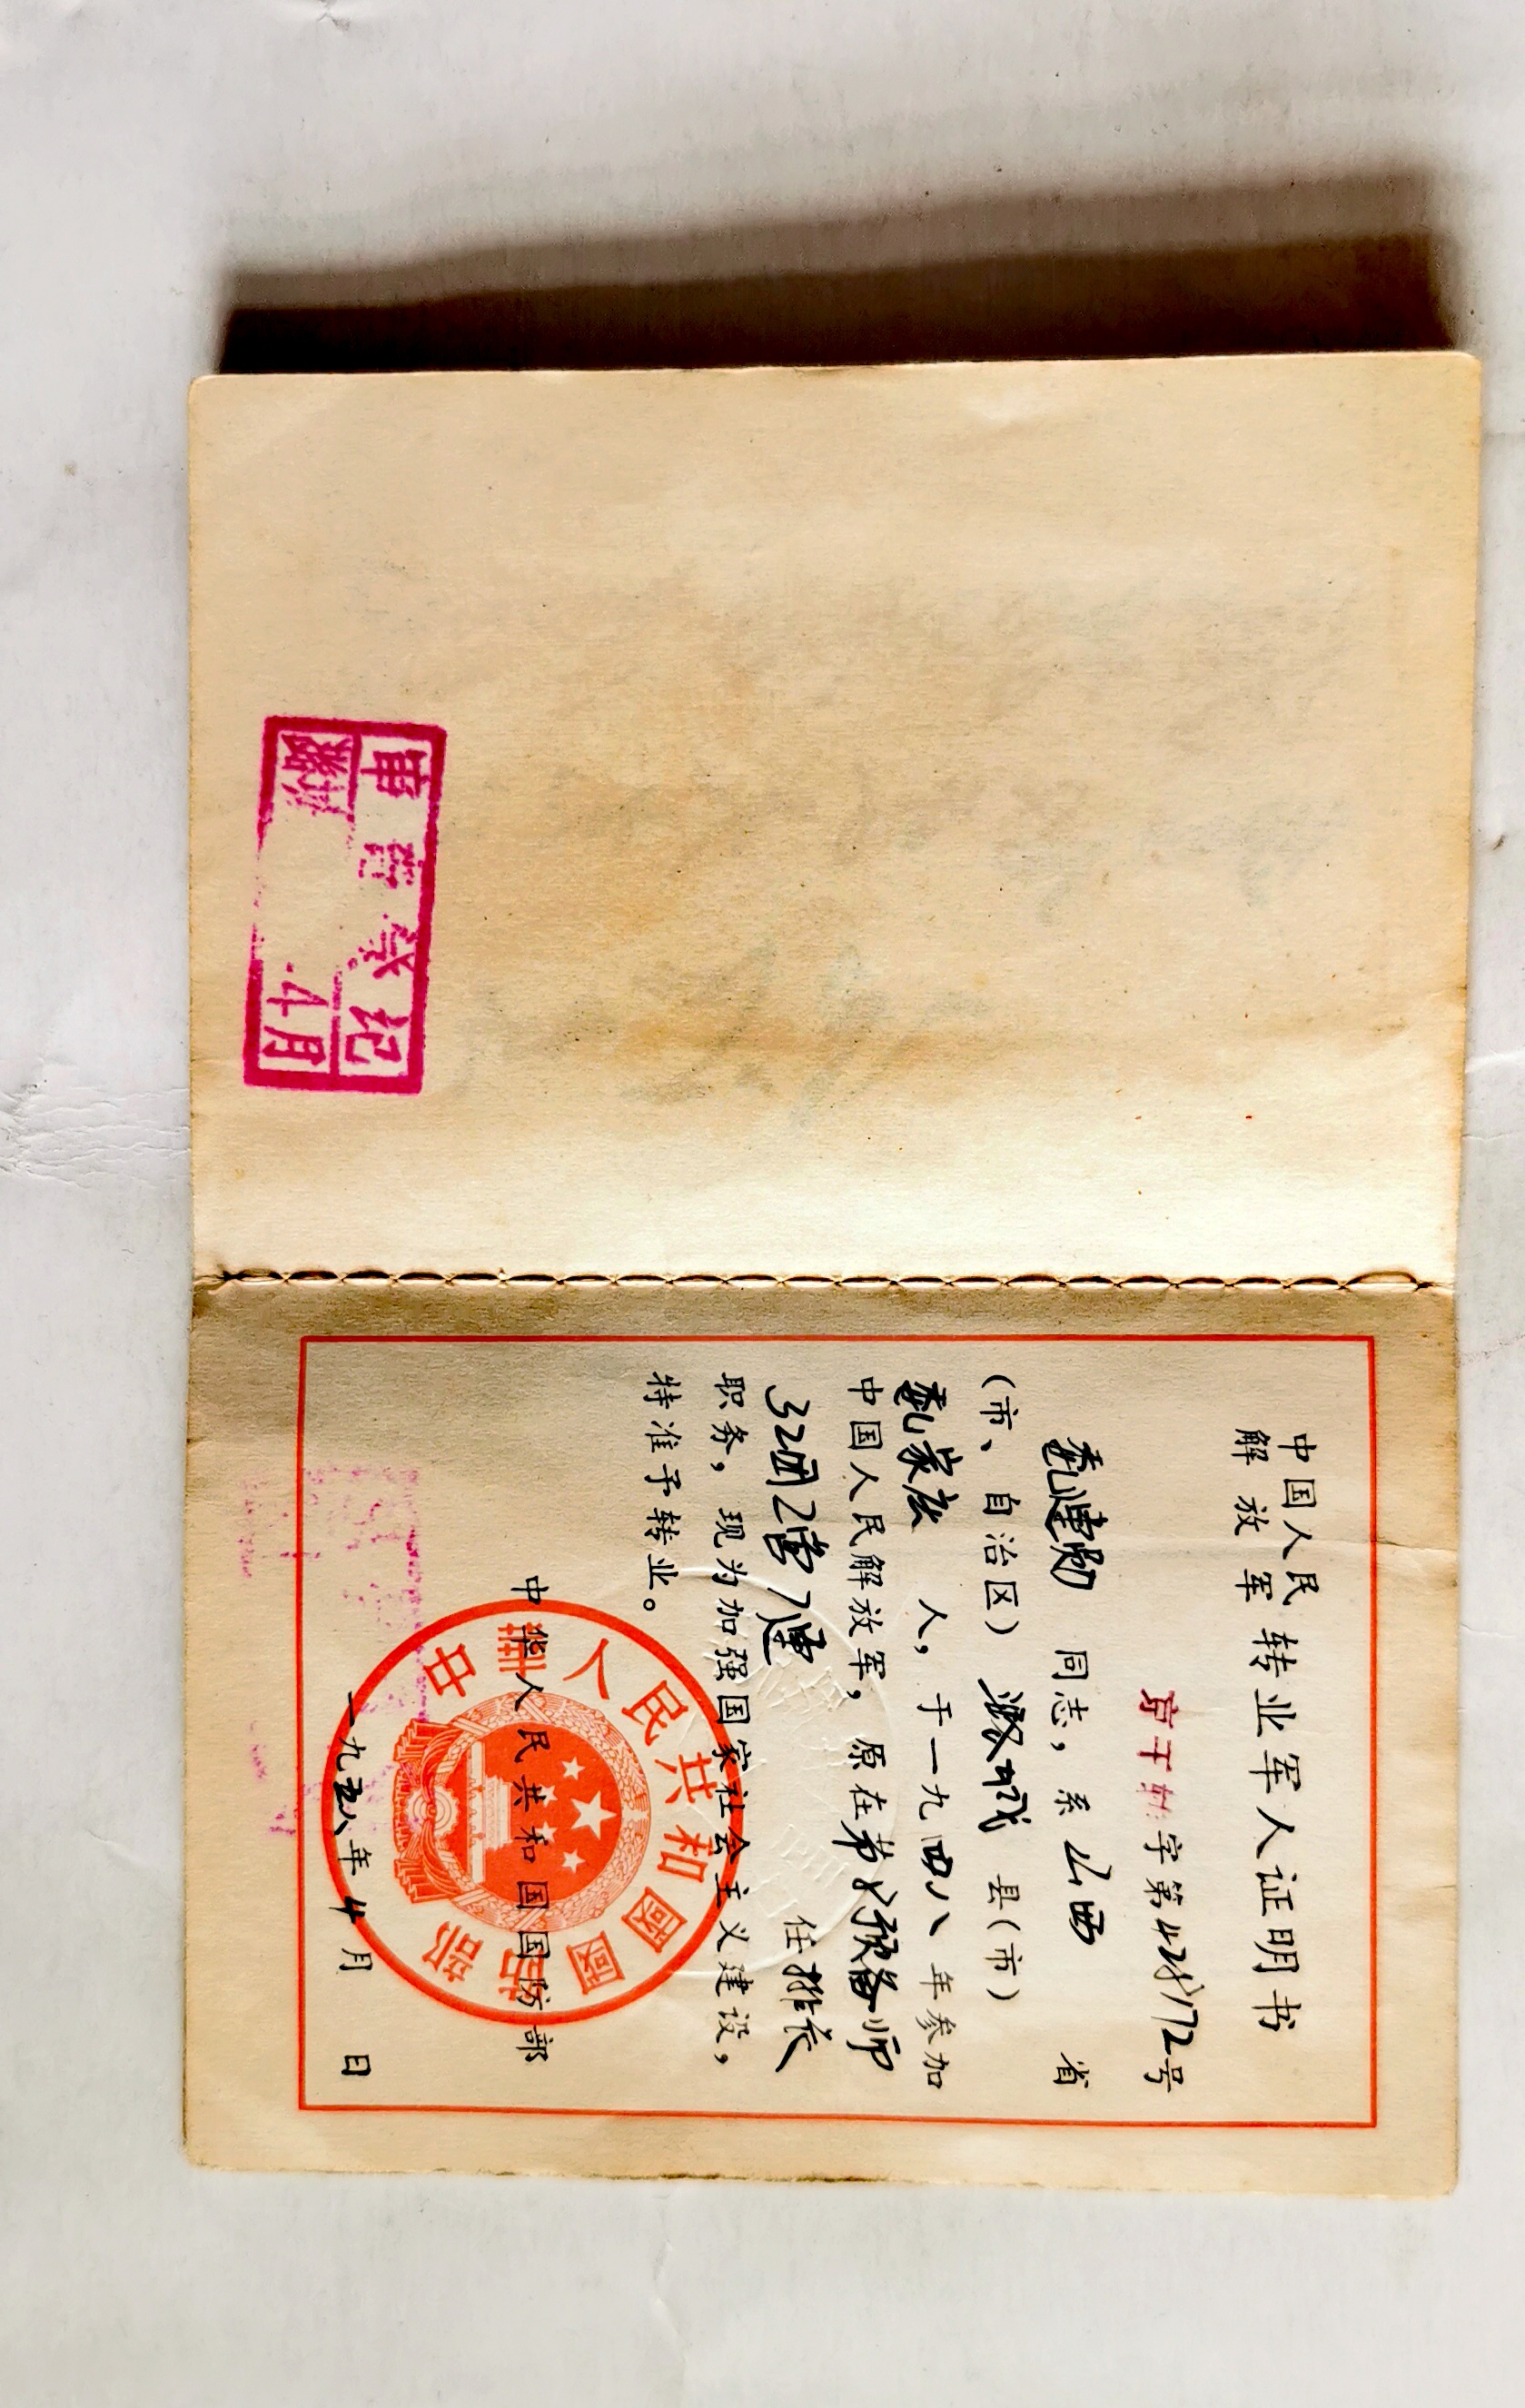 审查登记
4月
中国人民
解放军
转业军人证明书
京干转字第428172号
同志,系山西省
(市、自治区)潞城县(市)
人,于一九四八年参加
中国人民解放军,原在第预备师
32团2营7连任排长
职务,现为加强国家社会主义建设,
特准予转业。
中华人民共和国国防部
一九五八年4月日
中華人民共和國國防部